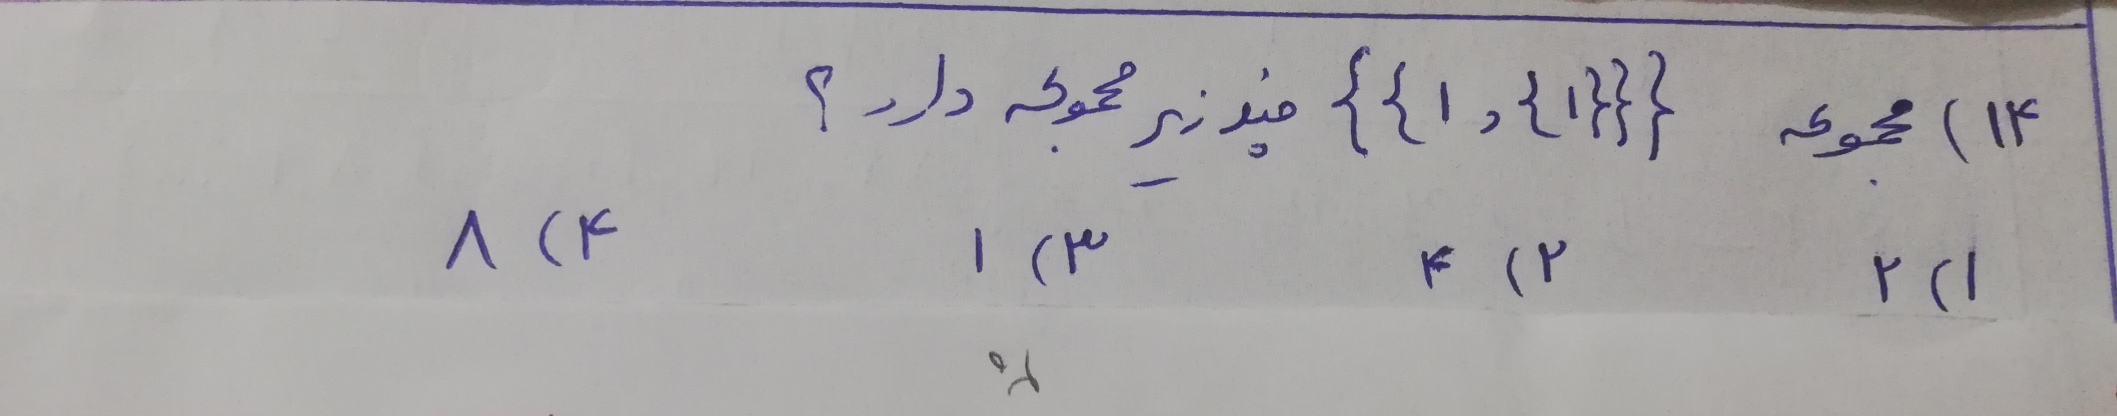 ۱۴) مجموعه {{۱ , {۱}}} چند زیر مجموعه دارد ؟
۱) ۲ ۲) ۴ ۳) ۱ ۴) ۸